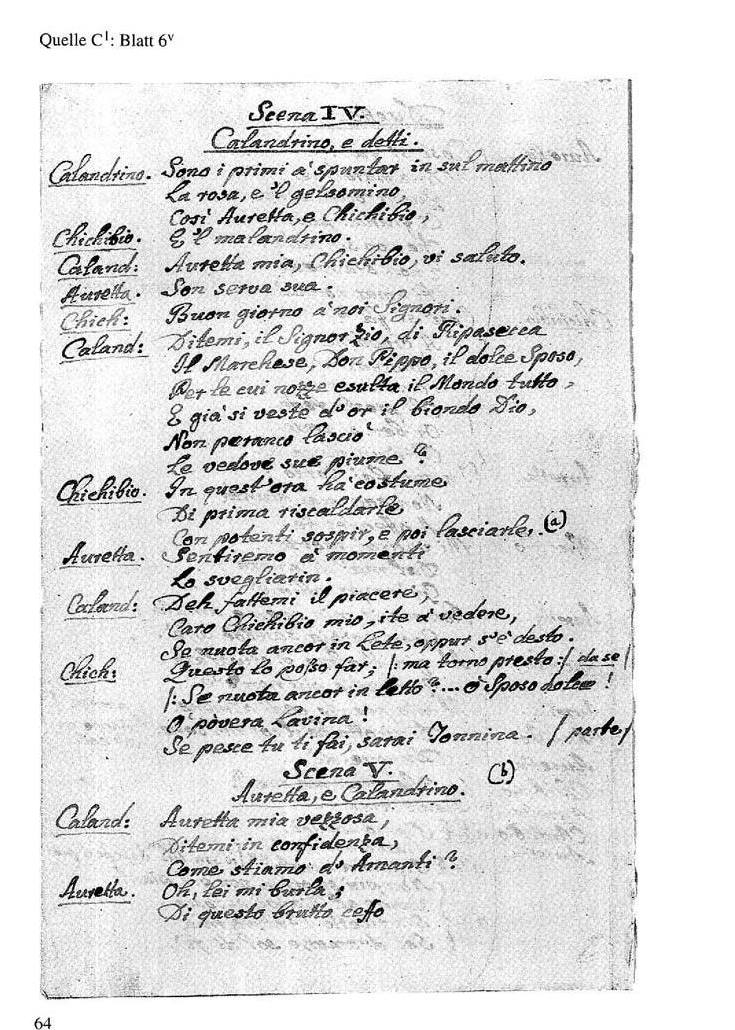 Quelle C¹: Blatt 6ᵛ
Scena IV.
Calandrino, e detti.
Calandrino. Sono i primi a' spuntar in sul mattino
La rosa, e 'l gelsomino,
Così Auretta, e Chichibio,
Chichibio. E 'l malandrino.
Caland: Auretta mia, Chichibio, vi saluto.
Auretta. Son serva sua.
Chich: Buon giorno a' noi Signori.
Caland: Ditemi, il Signor Zio, di Ripasecca
Il Marchese, Don Pippo, il dolce Sposo,
Per le cui nozze esulta il Mondo tutto,
E già si veste d'or il biondo Dio,
Non peranco lasciò
Le vedove sue piume?
Chichibio. In quest'ora ha costume
Di prima riscaldarle
Con potenti sospir, e poi lasciarle. (a)
Auretta. Sentiremo a' momenti
Lo svegliarin.
Caland: Deh fattemi il piacere,
Caro Chichibio mio, ite a' vedere,
Se nuota ancor in Lete, oppur s'è desto.
Chich: Questo lo posso far; /: ma torno presto :/ da se /
/: Se nuota ancor in letto?... O' Sposo dolce!
O' povera Lavina!
Se pesce tu ti fai, sarai Tonnina. / parte /
Scena V. (b)
Auretta, e Calandrino.
Caland: Auretta mia vezzosa,
Ditemi in confidenza,
Come stiamo d'Amanti?
Auretta. Oh, lei mi burla;
Di questo brutto ceffo
64